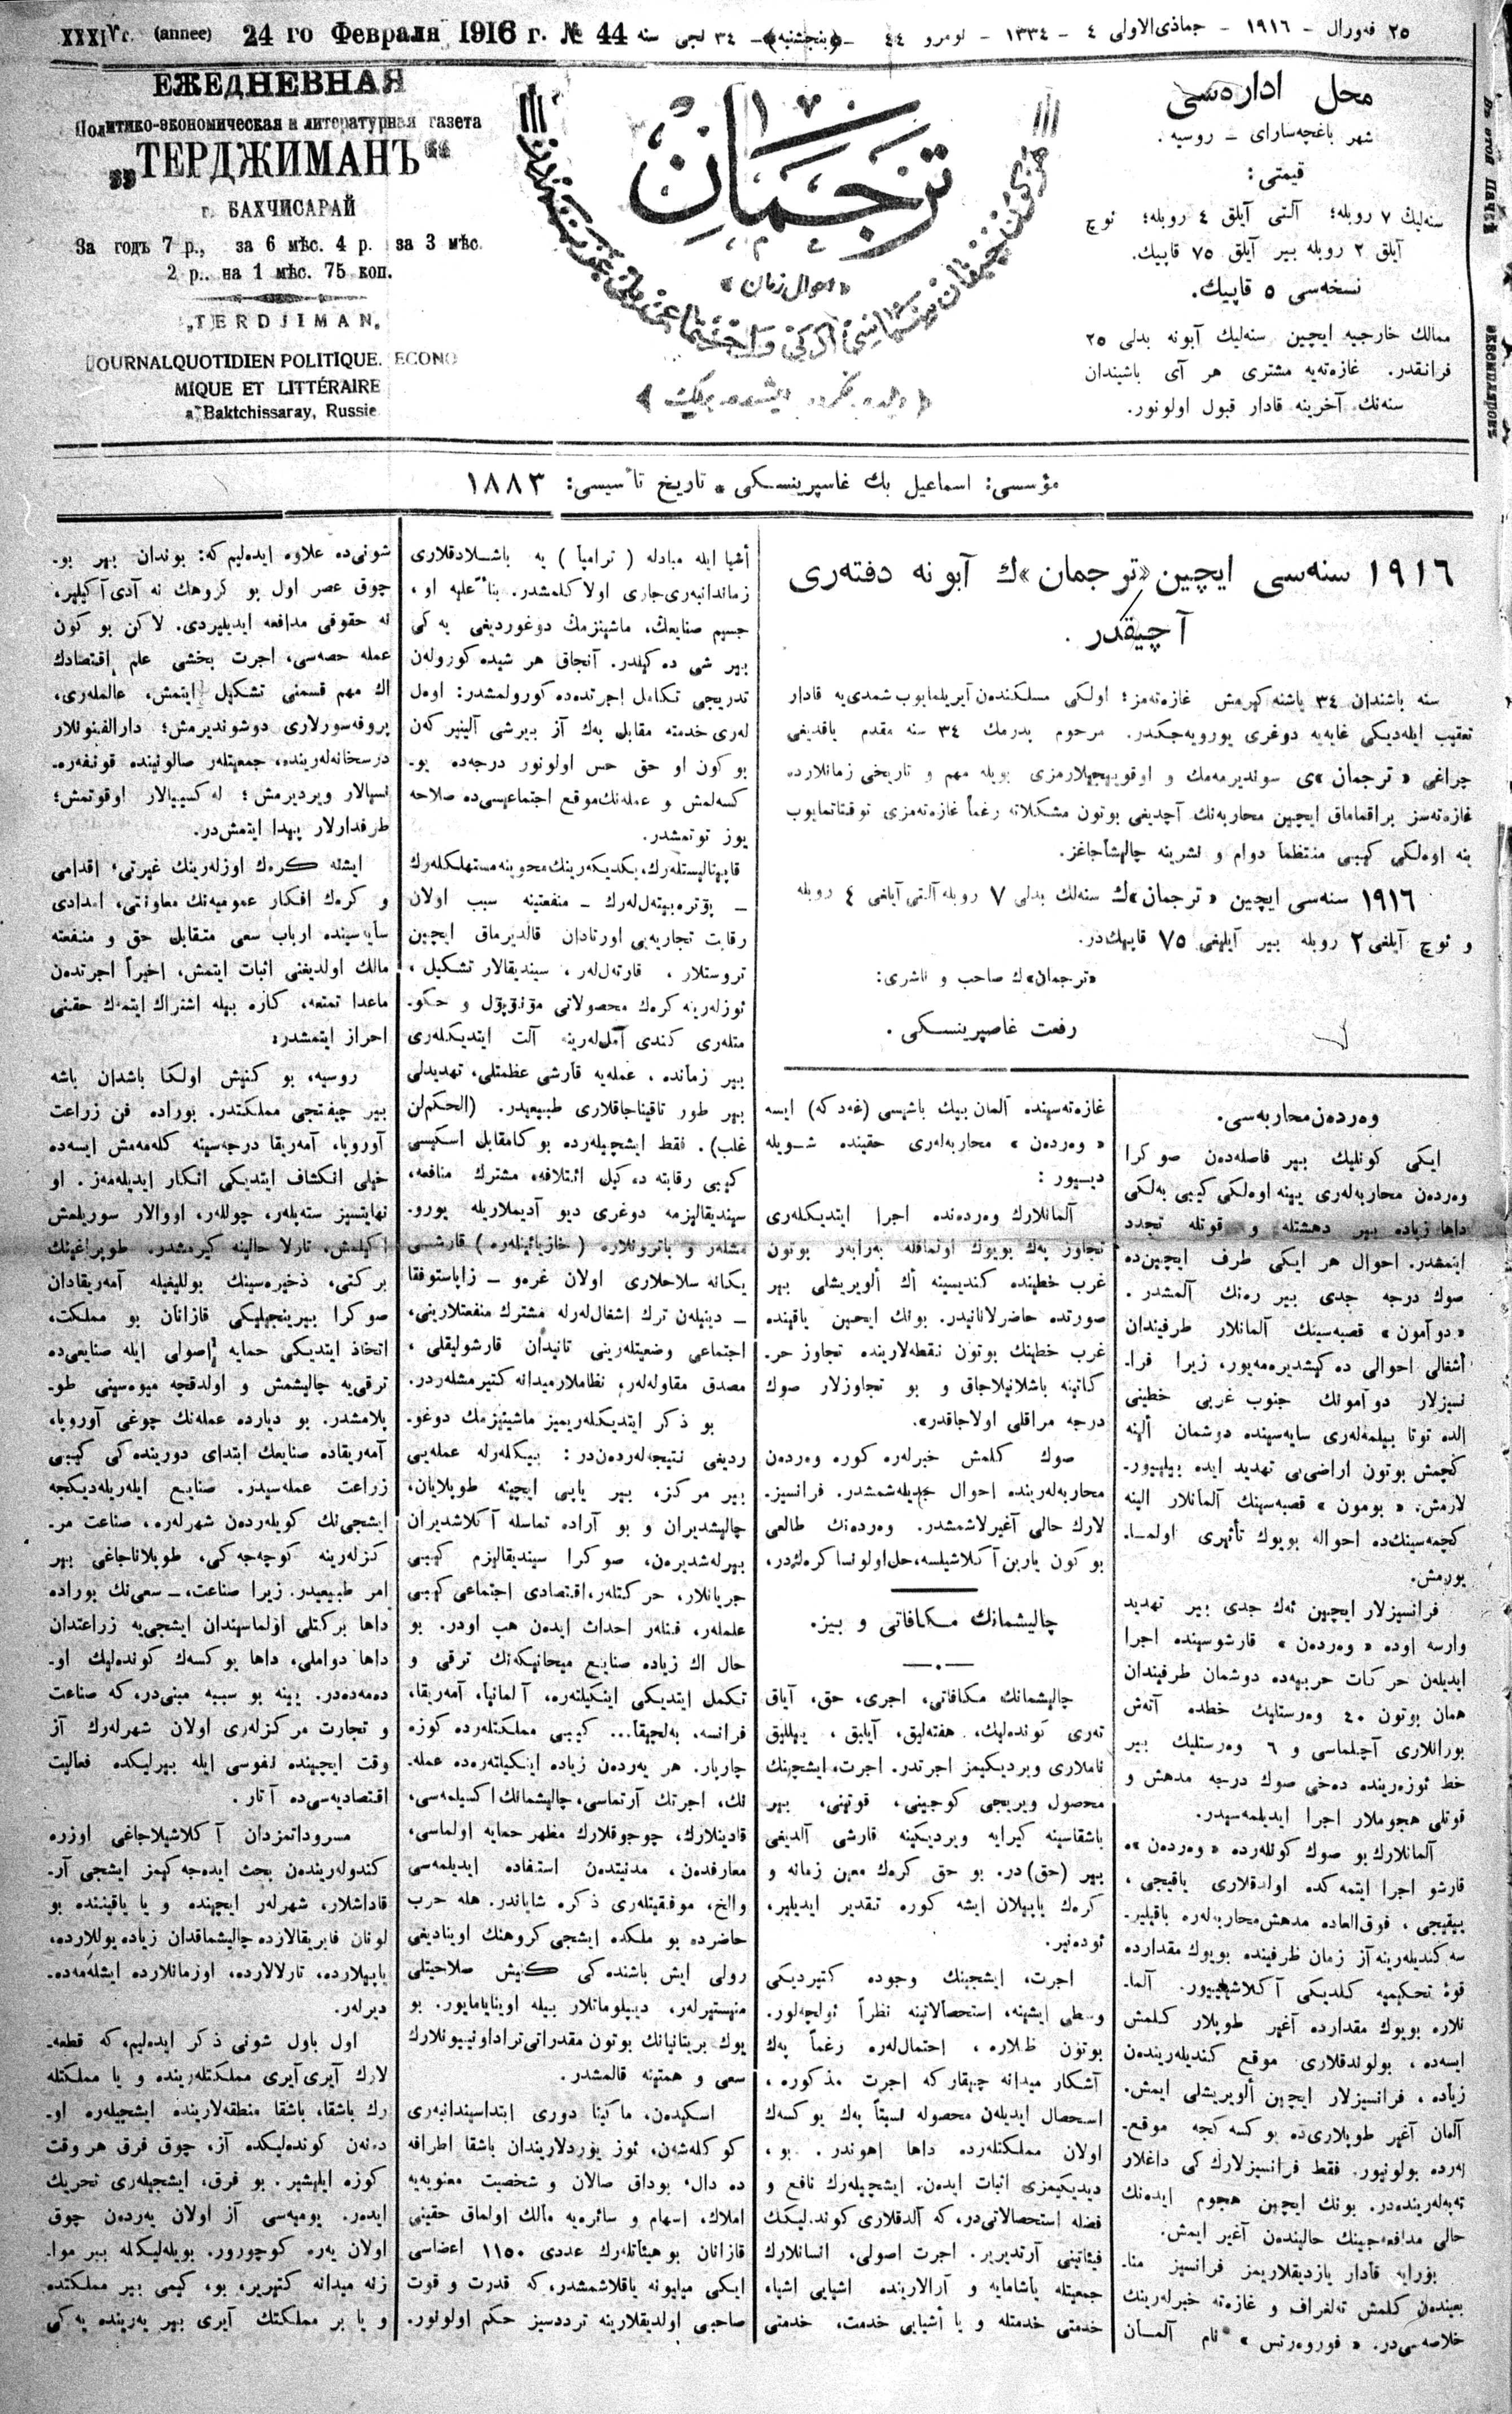 XXXIV г. (annee) 24 го Февраля 1916 г. № 44
٢٥ فەورال – ١٩١٦ – جماذی‌الاولی ٤ – ١٣٣٤ – نومرو ٤٤ – ﴿پنجشنبه﴾ – ٣٤ نجی سنه
ЕЖЕДНЕВНАЯ
Политико-экономическая и литературная газета
„ТЕРДЖИМАНЪ“
г. БАХЧИСАРАЙ
За годъ 7 р., за 6 мѣс. 4 р. за 3 мѣс.
2 р.. на 1 мѣс. 75 коп.
„TERDJIMAN„
JOURNAL QUOTIDIEN POLITIQUE. ECONO
MIQUE ET LITTÉRAIRE
a Baktchissaray, Russie
ترجمان
«احوال زمان»
﴿دیلده، فکرده، ایشده بیرلیك﴾
محل اداره‌سی
شهر باغچه‌سارای – روسیه.
قیمتی:
سنه‌لیك ٧ روبله؛ آلتی آیلق ٤ روبله؛ ئوچ
آیلق ٢ روبله بیر آیلق ٧٥ قاپیك.
نسخه‌سی ٥ قاپیك.
ممالك خارجیه ایچین سنه‌لیك آبونه بدلی ٢٥
فرانقدر. غازه‌ته‌یه مشتری هر آی باشیندان
سنه‌نك آخرینه قادار قبول اولونور.
مؤسسی: اسماعیل بك غاسپرینسكی * تاریخ تأسیسی: ١٨٨٣
١٩١٦ سنه‌سی ایچین «ترجمان»ك آبونه دفته‌ری
آچیقدر.
سنه باشندان ٣٤ یاشنه كیرمش غازه‌ته‌مز؛ اولكی مسلكندەن آیریلمایوب شمدی‌یه قادار
تعقیب ایله‌دیكی غایه‌یه دوغری یورویه‌جكدر. مرحوم پدرمك ٣٤ سنه مقدم یاقدیغی
چراغی «ترجمان»ی سوندیرمه‌مك و اوقویيجیلارمزی بویله مهم و تاریخی زمانلارده
غازه‌ته‌سز براقماماق ایچین محاربه‌نك آچدیغی بوتون مشكلاته رغماً غازه‌ته‌مزی توقتاتمایوب
ینه اوه‌لكی كیبی منتظماً دوام و نشرینه چالیشاجاغز.
١٩١٦ سنه‌سی ایچین «ترجمان»ك سنه‌لك بدلی ٧ روبله آلتی آیلغی ٤ روبله
و ئوچ آیلغی ٢ روبله بیر آیلیغی ٧٥ قاپیك‌در.
«ترجمان»ك صاحب و ناشری:
رفعت غاصپرینسكی.
وەردەن محاربه‌سی.
ایكی كونلیك بیر فاصله‌دەن صوكرا
وەردەن محاربه‌لەری یینه اوەلكی كیبی بەلكی
داها زیاده بیر دهشتله و قوتله تجدد
ایتمشدر. احوال هر ایكی طرف ایچین‌ده
صوك درجه جدی بیر رەنك آلمشدر.
«دوآمون» قصبه‌سینك آلمانلار طرفیندان
أشغالی احوالی ده‌كیشدیرەمه‌یور، زیرا فرا-
نسیزلار دوآمونك جنوب غربی خطینی
الده توتا بیلمه‌لەری سایه‌سینده دوشمان ألینه
كچمش بوتون اراضی‌یی تهدید ایده بیلییور-
لارمش. «بومون» قصبه‌سینك آلمانلار الینه
كچمه‌سینك‌ده احواله بویوك تأثیری اولما-
یورمش.
فرانسیزلار ایچین ئەك جدی بیر تهدید
وارسه اوده «وەردەن» قارشوسینده اجرا
ایدیلەن حركات حربیه‌ده دوشمان طرفیندان
همان بوتون ٤٠ وەرستلیك خطده آتەش
بورانلاری آچیلماسی و ٦ وەرستلیك بیر
خط ئوزەرینده دەخی صوك درجه مدهش و
قوتلی هجوملار اجرا ایدیلمه‌سیدر.
آلمانلارك بو صوك كونلەرده «وەردەن»ه
قارشو اجرا ایتمه‌كده اولدقلاری یاقیجی،
ییقیجی، فوق‌العاده مدهش محاربه‌لەره باقیلیر-
سه كندیلەرینه آز زمان ظرفینده بویوك مقدارده
قوۀ تحكیمیه كلدیكی آكلاشیلییور. آلما-
نلاره بویوك مقدارده آغیر طوپلار كلمش
ایسه‌ده، بولوندقلاری موقع كندیلەریندەن
زیاده، فرانسیزلار ایچین ألویریشلی ایمش.
آلمان آغیر طوپلاری‌ده یوكسه‌كجه موقع-
لەرده بولونیور. فقط فرانسیزلارك كی داغلار
تەپه‌لەرینده‌در. بونك ایچین هجوم ایدەنك
حالی مدافعه‌جینك حالیندەن آغیر ایمش.
بورایه قادار یازدیقلاریمز فرانسیز منا-
بعیندەن كلمش تەلغراف و غازەته خبرلەرینك
خلاصه‌سی‌در. «فوروەرتس» نام آلمان
غازەته‌سینده آلمان بیك باشیسی (غەدكه) ایسه
«وەردەن» محاربه‌لەری حقینده شویله
دیییور:
آلمانلارك وەردەنده اجرا ایتدیكلەری
تجاوز یەك بویوك اولماقله بەرابەر بوتون
غرب خطینده كندیسینه أك ألویریشلی بیر
صورتده حاضرلانانیدر. بونك ایچین یاقینده
غرب خطینك بوتون نقطه‌لارینده تجاوز حر-
كاتینه باشلانیلاجاق و بو تجاوزلار صوك
درجه مراقلی اولاجاقدر».
صوك كلمش خبرلەره كوره وەردەن
محاربه‌لەرینده احوال جدیله‌شمشدر. فرانسیز-
لارك حالی آغیرلاشمشدر. وەردەنك طالعی
بوكون یارین آكلاشیلسه، حل اولونسا كرەكدر.
چالیشمانك مكافاتی و بیز.
چالیشمانك مكافاتی، اجری، حق، آیاق
تەری كوندەلیك، هفته‌لیق، آیلیق، ییللیق
ناملاری ویردیكیمز اجرتدر. اجرت، ایشچینك
محصول ویریجی كوجینی، قوتینی، بیر
باشقاسینه كیرایه ویردیكینه قارشی آلدیغی
بیر (حق)در. بو حق كرەك معین زمانه و
كرەك یاپیلان ایشه كوره تقدیر ایدیلیر،
ئودەنیر.
اجرت، ایشچینك وجوده كتیردیكی
وسطی ایشینه، استحصالاتینه نظراً ئولچه‌لور.
بوتون ظلاره، احتمال‌لەره رغماً پەك
آشكار میدانه چیقاركه اجرت مذكوره،
استحصال ایدیلەن محصوله نسبتاً پەك یوكسەك
اولان مملكتلەرده داها اهوندر. بو،
دیدیكیمزی اثبات ایدەن. ایشچیلەرك نافع و
فضله استحصالاتی‌در، كه آلدقلاری كوندەلیكك
فیئاتینی آرتدیریر. اجرت اصولی، انسانلارك
جمعیتله یاشامایه و آرالارینده اشیایی اشیاء
خدمتی خدمتله و یا أشیایی خدمت، خدمتی
أشیا ایله مبادله (ترامپا) یه باشلادقلاری
زماندانبەری جاری اولا كلمشدر. بناءً علیه او،
جسیم صنایعك، ماشینزمك دوغوردیغی یەكی
بیر شی دەكیلدر. آنجاق هر شیده كورولەن
تدریجی تكامل اجرتده‌ده كورولمشدر: اوەل
لەری خدمته مقابل پەك آز بیرشی آلینیر كەن
بوكون او حق حس اولونور درجه‌ده یو-
كسه‌لمش و عمله‌نك موقع اجتماعیسی‌ده صلاحه
یوز توتمشدر.
قاپیتالیستلەرك، یكدیكەرینك محوینه مستهلكلەرك
– پوترەبیتەل‌لەرك – منفعتینه سبب اولان
رقابت تجاریه‌یی اورتادان قالدیرماق ایچین
تروستلار، قارتەل‌لەر، سیندیقالار تشكیل،
ئوزلەرینه كرەك محصولاتی مونوپول و حكو-
متلەری كندی أمللەرینه آلت ایتدیكلەری
بیر زمانده، عمله‌یه قارشی عظمتلی، تهدیدلی
بیر طور تاقیناجاقلاری طبیعیدر. (الحكم‌لن
غلب). فقط ایشچیلەرده بوكا مقابل اسكیسی
كیبی رقابته دەكیل ائتلافه، مشترك منافعه،
سیندیقالیزمه دوغری دیو آدیملاریله یورو-
مشلەر و پاترونلاره (خازیائینلەره) قارشی
یكانه سلاحلاری اولان غرەو – زاباستوفقا
– دینیلەن ترك اشغال‌لەرله مشترك منفعتلارینی،
اجتماعی وضعیتلەرینی تانیدان قارشولیقلی،
مصدق مقاوله‌لەر، نظاملار میدانه كتیرمشلەردر.
بو ذكر ایتدیكلەریمیز ماشینیزمك دوغو-
ردیغی نتیجه‌لەردەن‌در: بیكلەرله عمله‌یی
بیر مركز، بیر یاپی ایچینه طوپلایان،
چالیشدیران و بو آراده تماسله آكلاشدیران
بیرله‌شدیرەن، صوكرا سیندیقالیزم كیبی
جریانلار، حركتلەر، اقتصادی اجتماعی كیبی
علملەر، فنلەر احداث ایدەن هپ اودر. بو
حال اك زیاده صنایع میحانیكه‌نك ترقی و
تكمل ایتدیكی اینكیلتەره، آلمانیا، آمەریقا،
فرانسه، بەلچیقا... كیبی مملكتلەرده كوزه
چاربار. هر یەردەن زیاده اینكیلتەرەده عمله-
نك، اجرتك آرتماسی، چالیشمانك اكسیلمه‌سی،
قادینلارك، چوجوقلارك مظهر حمایه اولماسی،
معارفدەن، مدنیتدەن استفاده ایدیلمه‌سی
والخ، موفقیتلەری ذكره شایاندر. هله حرب
حاضرده بو ملكده ایشچی كروهنك اوینادیغی
رولی ایش باشنده‌كی كنیش صلاحیتلی
منیستیرلەر، دیپلومانلار بیله اوینایامایور. بو
یوك بریتانیانك بوتون مقدراتی تراداونیونلارك
سعی و همتینه قالمشدر.
اسكیدەن، ماكینا دوری ابتداسیندانبەری
كوكله‌شەن، ئوز یوردلاریندان باشقا اطرافه
ده دال، بوداق صالان و شخصیت معنویه‌یه
املاك، اسهام و سائره‌یه مالك اولماق حقینی
قازانان بو هیئاتلەرك عددی ١١٥٠ اعضاسی
ایكی میلیونه یاقلاشمشدر، كه قدرت و قوت
صاحبی اولدیقلارینه ترددسیز حكم اولونور.
شونی‌ده علاوه ایده‌لیم كه: بوندان بیر بو-
چوق عصر اول بو كروهك نه آدی آكیلیر،
نه حقوقی مدافعه ایدیلیردی. لاكن بو كون
عمله حصه‌سی، اجرت بخشی علم اقتصادك
اك مهم قسمنی تشكیل ایتمش، عالملەری،
پروفه‌سورلاری دوشوندیرمش؛ دارالفنونلار
درسخانه‌لەرینده، جمعیتلەر صالونینده قونفەرە-
نسیالار ویردیرمش؛ لەكسییالار اوقوتمش؛
طرفدارلار پیدا ایتمش‌در.
ایشته كرەك اوزلەرینك غیرتی، اقدامی
و كرەك افكار عمومیه‌نك معاونتی، امدادی
سایه‌سینده ارباب سعی متقابل حق و منفعته
مالك اولدیغنی اثبات ایتمش، اخیراً اجرتدەن
ماعدا تمتعه، كاره بیله اشتراك ایتمك حقنی
احراز ایتمشدر.
روسیه، بو كنیش اولكا باشدان باشه
بیر چیفتجی مملكتدر. بوراده فن زراعت
آوروپا، آمەریقا درجه‌سینه كلەمه‌مش ایسه‌ده
خیلی انكشاف ایتدیكی انكار ایدیله‌مەز. او
نهایتسیز ستەپلەر، چوللەر، اووالار سورولمش
اكیلمش، تارلا حالینه كیرمشدر. طوپراغینك
بركتی، ذخیرەسینك بوللیغیله آمەریقادان
صوكرا بیرینجیلیكی قازانان بو مملكت،
اتخاذ ایتدیكی حمایه اصولی ایله صنایعی‌ده
ترقی‌یه چالیشمش و اولدقجه میوەسینی طو-
پلامشدر. بو دیارده عمله‌نك چوغی آوروپا،
آمەریقاده صنایعك ابتدای دورینده‌كی كیبی
زراعت عمله‌سیدر. صنایع ایلەریلەدیكجه
ایشچی‌نك كویلەردەن شهرلەره، صناعت مر-
كزلەرینه كوچه‌جەكی، طوپلاناجاغی بیر
امر طبیعیدر. زیرا صناعت، – سعی‌نك بوراده
داها بركتلی اولماسیندان ایشچی‌یه زراعتدان
داها دواملی، داها یوكسەك كوندەلیك او-
دەمه‌ده‌در. یینه بو سببه مبنی‌در، كه صناعت
و تجارت مركزلەری اولان شهرلەرك آز
وقت ایچینده نفوسی ایله بیرلیكده فعالیت
اقتصادیه‌سی‌ده آتار.
مسروداتمزدان آكلاشیلاجاغی اوزره
كندولەریندەن بحث ایده‌جه‌كیمز ایشچی آر-
قاداشلار، شهرلەر ایچینده و یا یاقیننده بو
لونان فابریقالارده چالیشماقدان زیاده یوللارده،
یاپیلارده، تارلالارده، اورمانلارده ایشله‌مه‌ده-
دیرلەر.
اول باول شونی ذكر ایده‌لیم، كه قطعه-
لارك آیری آیری مملكتلەرینده و یا مملكتله
رك باشقا، باشقا منطقه‌لارینده ایشچیلەره او-
دەنەن كوندەلیكده آز، چوق فرق هر وقت
كوزه ایلیشیر. بو فرق، ایشچیلەری تحریك
ایدەر. یومیه‌سی آز اولان یەردەن چوق
اولان یەره كوچورور. بویله‌لیكله بیر موا-
زنه میدانه كتیریر، بو، كیمی بیر مملكتده
و یا بر مملكتك آیری بیر یەرینده یەكی